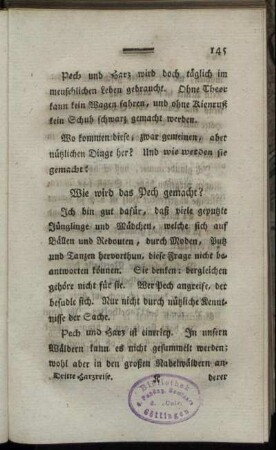 145
Pech und Harz wird doch täglich im
menschlichen Leben gebraucht. Ohne Theer
kann kein Wagen fahren, und ohne Kienruß
kein Schuh schwarz gemacht werden.
Wo kommen diese, zwar gemeinen, aber
nützlichen Dinge her? Und wie werden sie
gemacht?
Wie wird das Pech gemacht?
Ich bin gut dafür, daß viele geputzte
Jünglinge und Mädchen, welche sich auf
Bällen und Redouten, durch Moden, Putz
und Tanzen hervorthun, diese Frage nicht be-
antworten können. Sie denken: dergleichen
gehöre nicht für sie. Wer Pech angreife, der
besudle sich. Nur nicht durch nützliche Kennt-
nisse der Sache.
Pech und Harz ist einerley. In unsern
Wäldern kann es nicht gesammelt werden;
wohl aber in den großen Nadelwäldern an-
Dritte Harzreise. K derer
Bibliothek
Göttingen